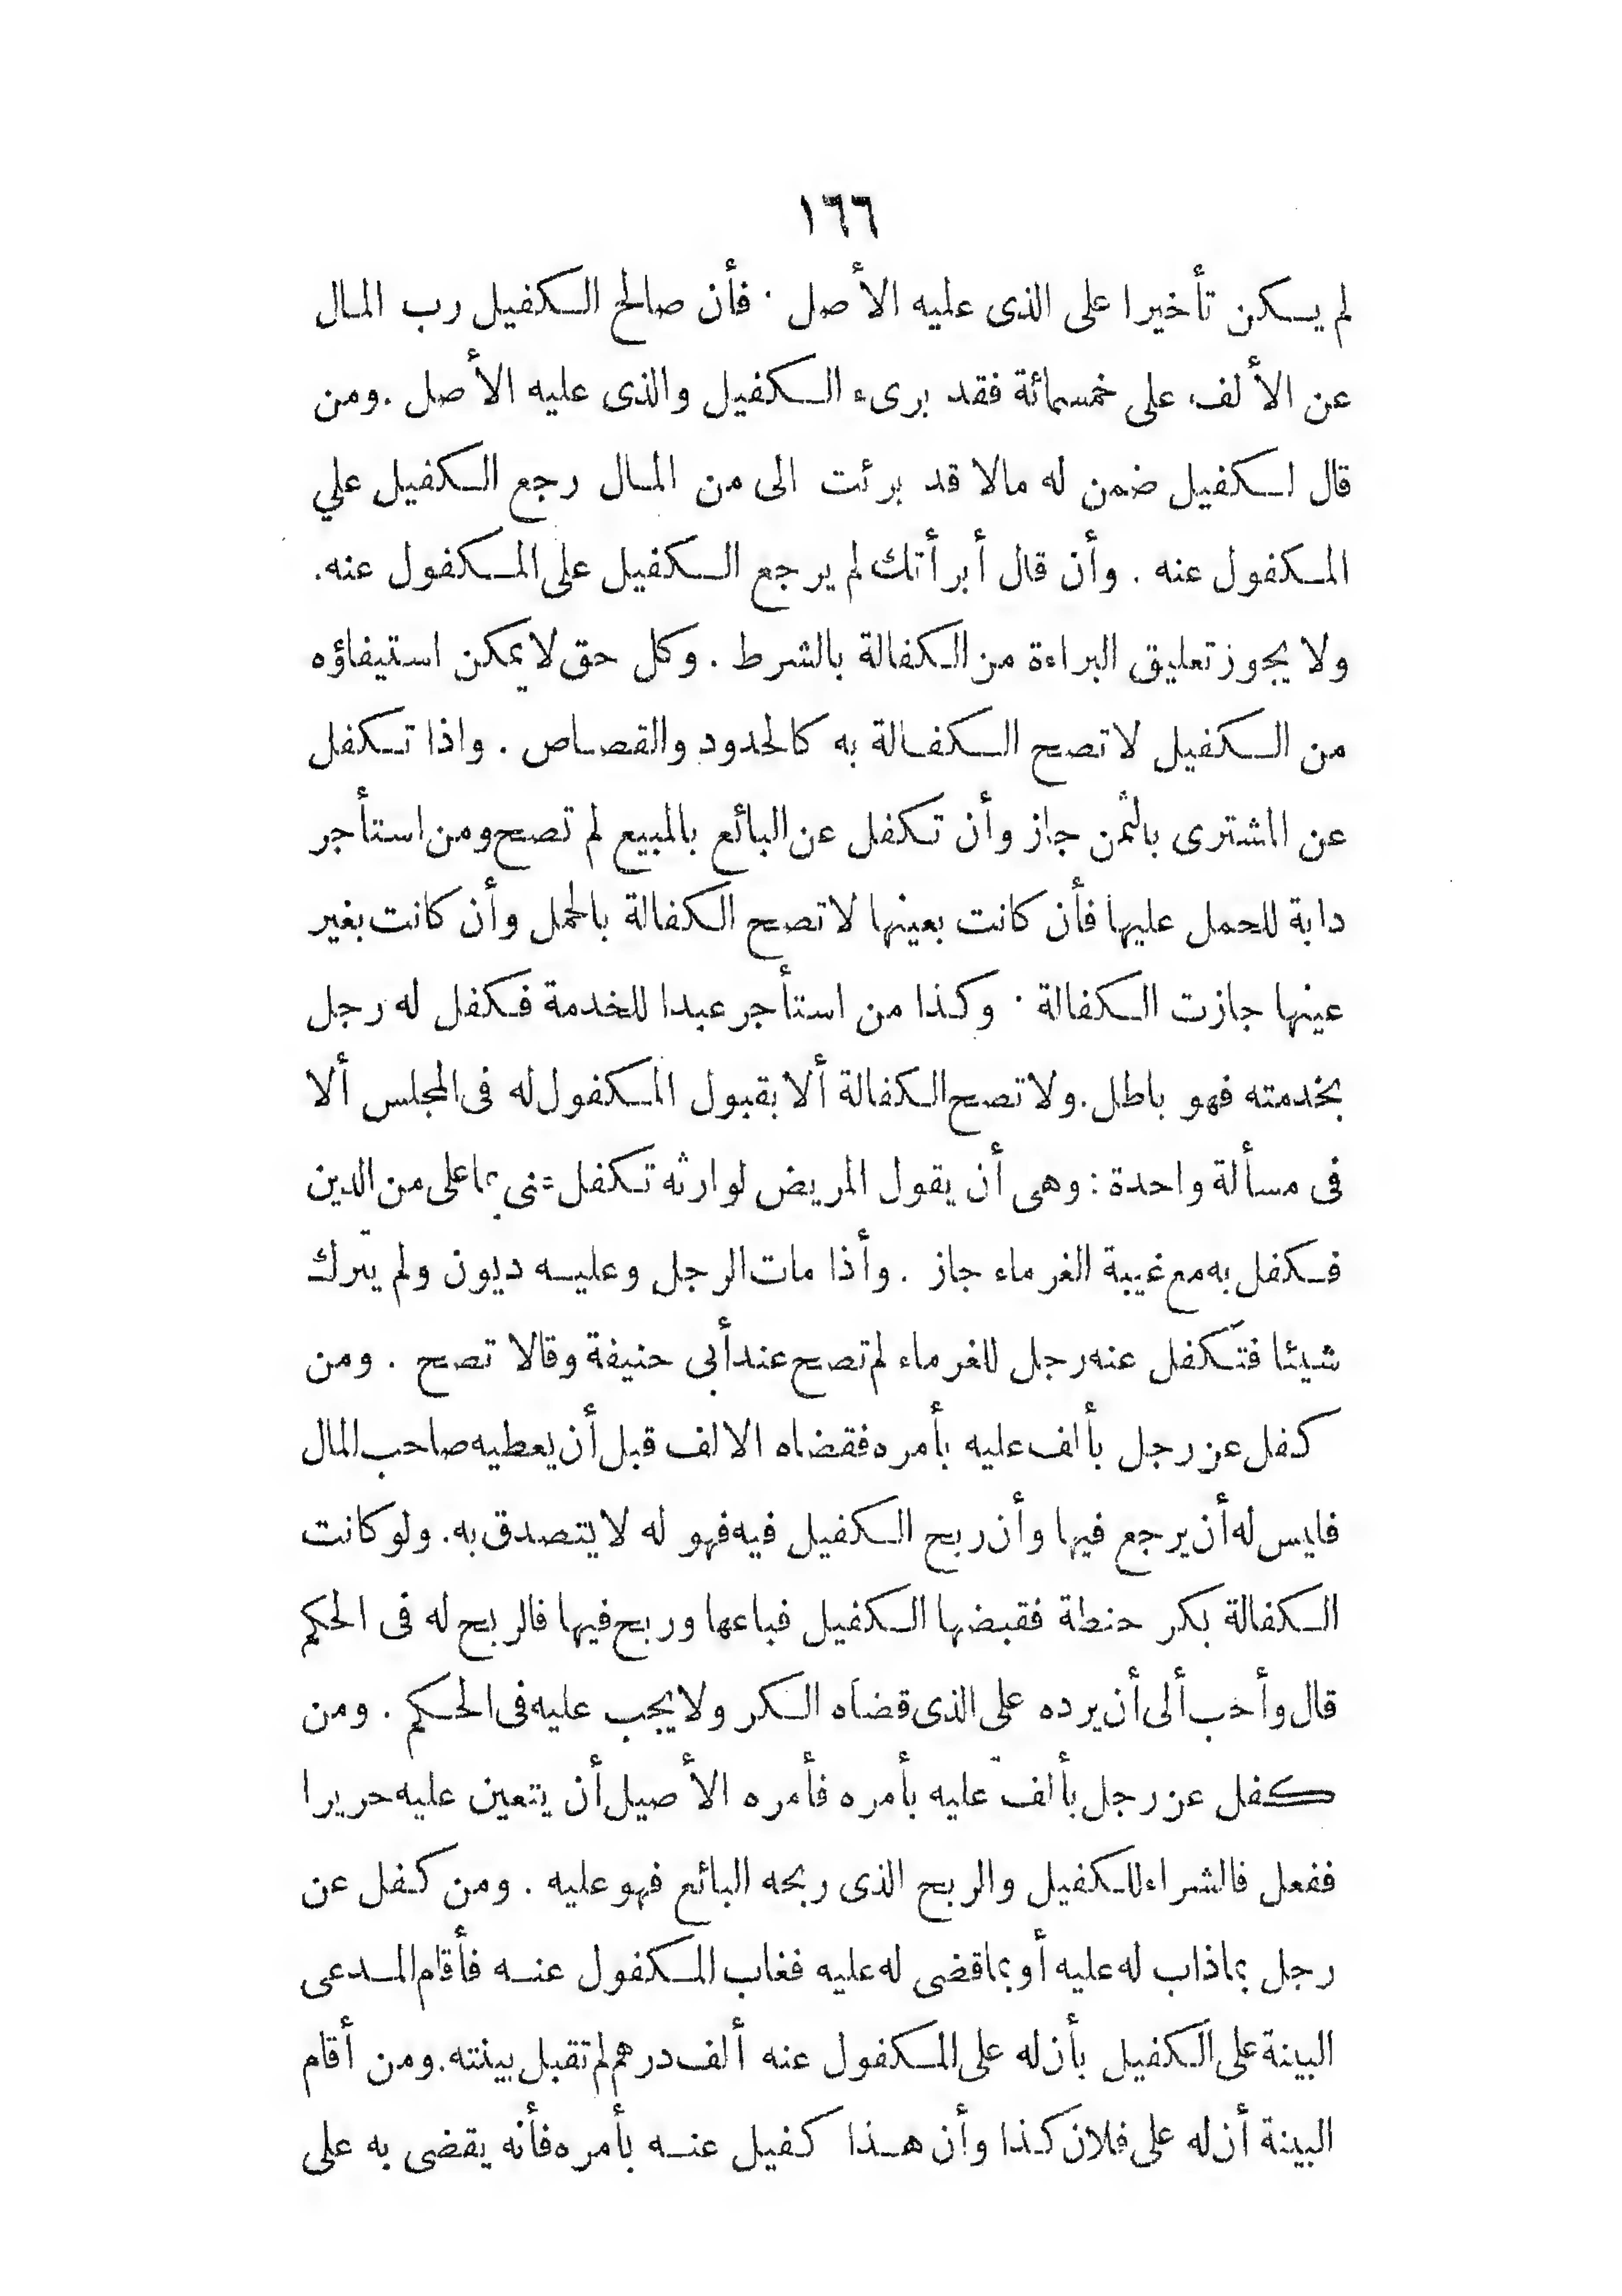 ١٦٦
لم يكن تأخيرا على الذى عليه الأصل . فأن صالح الكفيل رب المال
عن الألف على خمسمائة فقد برىء الكفيل والذى عليه الأصل . ومن
قال لكفيل ضمن له مالا قد برئت الى من المال رجع الكفيل علي
المكفول عنه . وأن قال أبرأتك لم يرجع الكفيل على المكفول عنه .
ولا يجوز تعليق البراءة من الكفالة بالشرط . وكل حق لا يمكن استيفاؤه
من الكفيل لا تصح الكفالة به كالحدود والقصاص . واذا تكفل
عن المشترى بالثمن جاز وأن تكفل عن البائع بالمبيع لم تصح ومن استأجر
دابة للحمل عليها فأن كانت بعينها لا تصح الكفالة بالحمل وأن كانت بغير
عينها جازت الكفالة . وكذا من استأجر عبدا للخدمة فكفل له رجل
بخدمته فهو باطل . ولا تصح الكفالة ألا بقبول المكفول له فى المجلس ألا
فى مسألة واحدة : وهى أن يقول المريض لوارثه تكفل عنى بما على من الدين
فكفل به مع غيبة الغرماء جاز . وأذا مات الرجل وعليه ديون ولم يترك
شيئا فتكفل عنه رجل للغرماء لم تصح عند أبى حنيفة وقالا تصح . ومن
كفل عن رجل بألف عليه بأمره فقضاه الالف قبل أن يعطيه صاحب المال
فليس له أن يرجع فيها وأن ربح الكفيل فيه فهو له لا يتصدق به . ولو كانت
الكفالة بكر حنطة فقبضها الكفيل فباعها وربح فيها فالربح له فى الحكم
قال وأحب ألى أن يرده على الذى قضاه الكر ولا يجب عليه فى الحكم . ومن
كفل عن رجل بألف عليه بأمره فأمره الأصيل أن يتعين عليه حريرا
ففعل فالشراء للكفيل والربح الذى ربحه البائع فهو عليه . ومن كفل عن
رجل بماذاب له عليه أو بما قضى له عليه فغاب المكفول عنه فأقام المدعى
البينة على الكفيل بأن له على المكفول عنه ألف درهم لم تقبل بينته . ومن أقام
البينة أن له على فلان كذا وأن هذا كفيل عنه بأمره فأنه يقضى به على